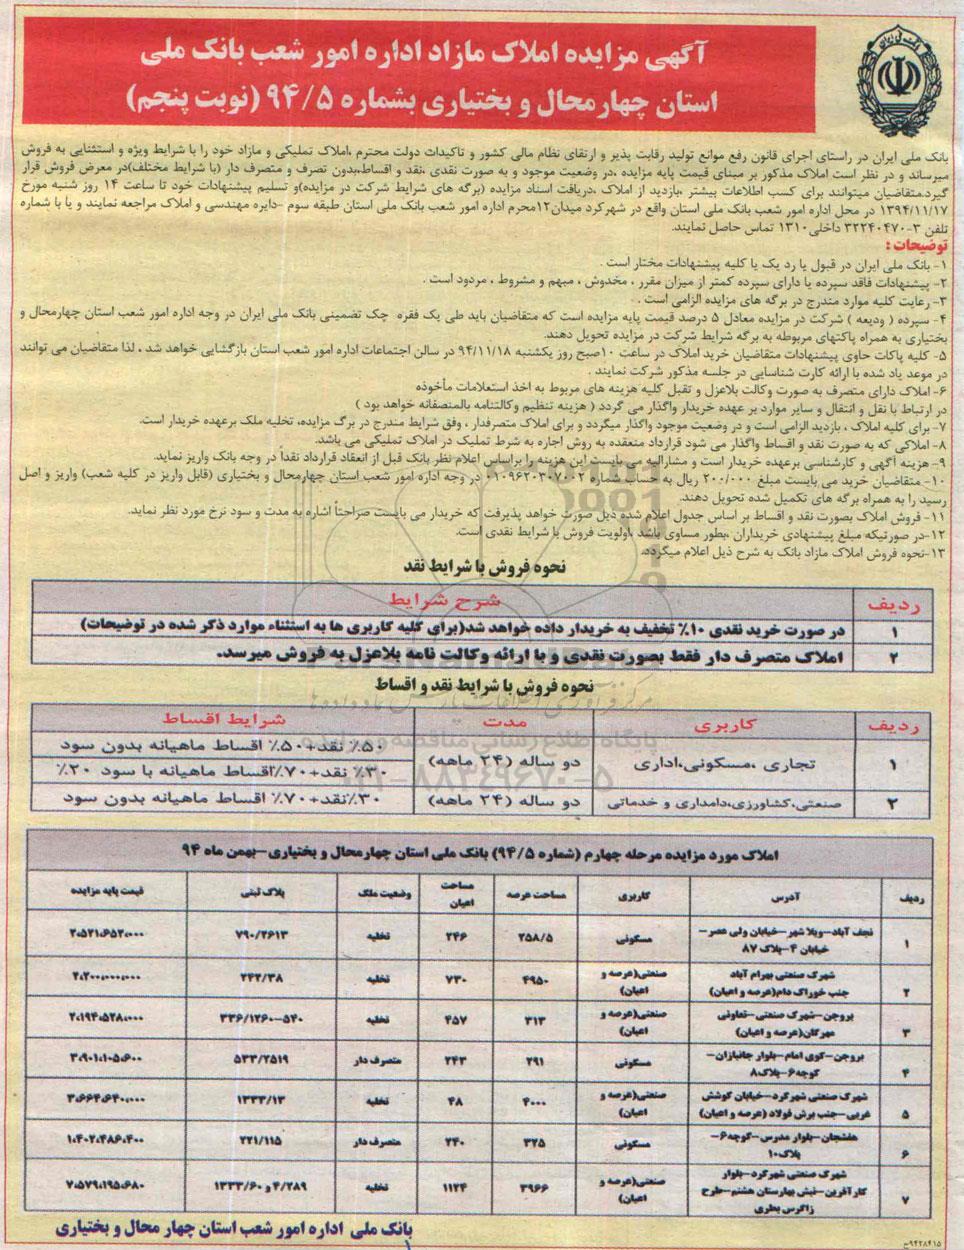 آگهی مزایده املاک مازاد اداره امور شعب بانک ملی
استان چهارمحال و بختیاری بشماره ۹۴/۵ (نوبت پنجم)
بانک ملی ایران در راستای اجرای قانون رفع موانع تولید رقابت پذیر و ارتقای نظام مالی کشور و تاکیدات دولت محترم ،املاک تملیکی و مازاد خود را با شرایط ویژه و استثنایی به فروش
میرساند و در نظر است املاک مذکور بر مبنای قیمت پایه مزایده ،در وضعیت موجود و به صورت نقدی ،نقد و اقساط،بدون تصرف و متصرف دار (با شرایط مختلف)در معرض فروش قرار
گیرد.متقاضیان میتوانند برای کسب اطلاعات بیشتر ،بازدید از املاک ،دریافت اسناد مزایده (برگه های شرایط شرکت در مزایده)و تسلیم پیشنهادات خود تا ساعت ۱۴ روز شنبه مورخ
۱۳۹۴/۱۱/۱۷ در محل اداره امور شعب بانک ملی استان واقع در شهرکرد میدان۱۲محرم اداره امور شعب بانک ملی استان طبقه سوم -دایره مهندسی و املاک مراجعه نمایند و یا با شماره
تلفن ۳-۳۲۲۴۰۴۷۰ داخلی۱۳۱۰ تماس حاصل نمایند.
توضیحات :
۱- بانک ملی ایران در قبول یا رد یک یا کلیه پیشنهادات مختار است .
۲- پیشنهادات فاقد سپرده یا دارای سپرده کمتر از میزان مقرر ، مخدوش ، مبهم و مشروط ، مردود است .
۳- رعایت کلیه موارد مندرج در برگه های مزایده الزامی است .
۴- سپرده ( ودیعه ) شرکت در مزایده معادل ۵ درصد قیمت پایه مزایده است که متقاضیان باید طی یک فقره چک تضمینی بانک ملی ایران در وجه اداره امور شعب استان چهارمحال و
بختیاری به همراه پاکتهای مربوطه به برگه شرایط شرکت در مزایده تحویل دهند.
۵- کلیه پاکات حاوی پیشنهادات متقاضیان خرید املاک در ساعت ۱۰صبح روز یکشنبه ۹۴/۱۱/۱۸ در سالن اجتماعات اداره امور شعب استان بازگشایی خواهد شد ، لذا متقاضیان می توانند
در موعد یاد شده با ارائه کارت شناسایی در جلسه مذکور شرکت نمایند .
۶- املاک دارای متصرف به صورت وکالت بلاعزل و تقبل کلیه هزینه های مربوط به اخذ استعلامات مأخوذه
در ارتباط با نقل و انتقال و سایر موارد بر عهده خریدار واگذار می گردد ( هزینه تنظیم وکالتنامه بالمنصفانه خواهد بود )
۷- برای کلیه املاک ، بازدید الزامی است و در وضعیت موجود واگذار میگردد و برای املاک متصرفدار ، وفق شرایط مندرج در برگ مزایده، تخلیه ملک برعهده خریدار است.
۸- املاکی که به صورت نقد و اقساط واگذار می شود قرارداد منعقده به روش اجاره به شرط تملیک در املاک تملیکی می باشد.
۹- هزینه آگهی و کارشناسی برعهده خریدار است و مشارالیه می بایست این هزینه را براساس اعلام نظر بانک قبل از انعقاد قرارداد نقداً در وجه بانک واریز نماید.
۱۰- متقاضیان خرید می بایست مبلغ ۲۰۰/۰۰۰ ریال به حساب شماره ۰۱۰۹۶۲۰۳۰۷۰۰۲ در وجه اداره امور شعب استان چهارمحال و بختیاری (قابل واریز در کلیه شعب) واریز و اصل
رسید را به همراه برگه های تکمیل شده تحویل دهند.
۱۱- فروش املاک بصورت نقد و اقساط بر اساس جدول اعلام شده ذیل صورت خواهد پذیرفت که خریدار می بایست صراحتاً اشاره به مدت و سود نرخ مورد نظر نماید.
۱۲-در صورتیکه مبلغ پیشنهادی خریداران ،بطور مساوی باشد ،اولویت فروش با شرایط نقدی است.
۱۳-نحوه فروش املاک مازاد بانک به شرح ذیل اعلام میگردد.
نحوه فروش با شرایط نقد
ردیف شرح شرایط
۱ در صورت خرید نقدی ۱۰٪ تخفیف به خریدار داده خواهد شد(برای کلیه کاربری ها به استثناء موارد ذکر شده در توضیحات)
۲ املاک متصرف دار فقط بصورت نقدی و با ارائه وکالت نامه بلاعزل به فروش میرسد.
نحوه فروش با شرایط نقد و اقساط
پایگاه اطلاع رسانی مناقصه و مزایده
۰۲۱-۸۸۳۴۹۶۷۰-۵
ردیف کاربری مدت شرایط اقساط
۱ تجاری ،مسکونی،اداری دو ساله (۲۴ ماهه) ۵۰٪ نقد+۵۰٪ اقساط ماهیانه بدون سود
۳۰٪ نقد+۷۰٪اقساط ماهیانه با سود ۲۰٪
۲ صنعتی،کشاورزی،دامداری و خدماتی دو ساله (۲۴ ماهه) ۳۰٪نقد+۷۰٪ اقساط ماهیانه بدون سود
املاک مورد مزایده مرحله چهارم (شماره ۹۴/۵) بانک ملی استان چهارمحال و بختیاری-بهمن ماه ۹۴
ردیف آدرس کاربری مساحت عرصه مساحت اعیان وضعیت ملک پلاک ثبتی قیمت پایه مزایده
۱ نجف آباد-ویلا شهر-خیابان ولی عصر-خیابان ۴-پلاک ۸۷ مسکونی ۲۵۸/۵ ۲۴۶ تخلیه ۷۹۰/۲۶۱۳ ۲،۵۲۱،۶۵۲،۰۰۰
۲ شهرک صنعتی بهرام آباد جنب خوراک دام(عرصه و اعیان) صنعتی(عرصه و اعیان) ۴۹۵۰ ۷۳۰ تخلیه ۲۴۲/۳۸ ۲،۲۰۰،۰۰۰،۰۰۰
۳ بروجن-شهرک صنعتی-تعاونی مهرگان(عرصه و اعیان) صنعتی(عرصه و اعیان) ۳۱۳ ۴۵۷ تخلیه ۳۳۶/۱۲۶۰-۵۴۰ ۲،۱۹۴،۵۲۸،۰۰۰
۴ بروجن-کوی امام-بلوار جانبازان-کوچه۶-پلاک۸ مسکونی ۲۹۱ ۲۴۳ متصرف دار ۵۳۳/۲۵۱۹ ۳،۹۰۱،۱۰۵،۶۰۰
۵ شهرک صنعتی شهرکرد-خیابان کوشش غربی-جنب برش فولاد (عرصه و اعیان) صنعتی(عرصه و اعیان) ۴۰۰۰ ۴۸ تخلیه ۱۳۳۳/۱۳ ۳،۶۶۴،۶۴۰،۰۰۰
۶ هفشجان-بلوار مدرس-کوچه۶-پلاک۱۰ مسکونی ۳۲۵ ۲۴۰ متصرف دار ۲۲۱/۱۱۵ ۱،۴۰۲،۴۸۶،۴۰۰
۷ شهرک صنعتی شهرکرد-بلوار کارآفرین-نبش بهارستان هشتم-طرح زاگرس بطری صنعتی(عرصه و اعیان) ۳۹۶۶ ۱۱۲۴ تخلیه ۴/۲۸۹ و ۱۳۳۳/۶۰ ۷،۵۷۹،۱۹۵،۶۸۰
بانک ملی اداره امور شعب استان چهار محال و بختیاری
۹۴۲۸۴۱۵ح